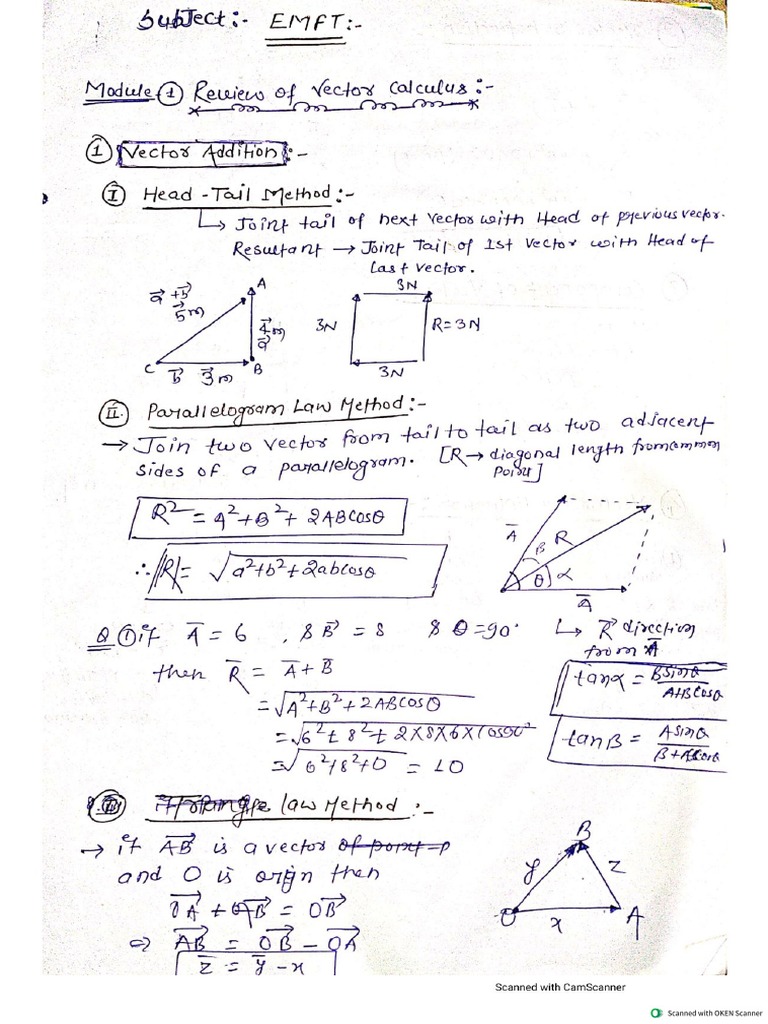 Subject:- EMFT:-
Module-① Review of Vector Calculus:-
① Vector Addition:-
Ⓘ Head-Tail Method:-
↳ Joint tail of next vector with Head of previous vector.
Resultant → Joint Tail of 1st vector with Head of
last vector.
A
a⃗+b⃗
5m
4m
a⃗
C
b⃗ 3m
B
3N
3N
R=3N
3N
Ⅱ. Parallelogram Law Method:-
→ Join two vector from tail to tail as two adjacent
sides of a parallelogram. [R→diagonal length from common
point]
R² = A²+B²+2ABcosθ
∴ |R| = √a²+b²+2abcosθ
A̅
β
R
θ
α
A̅
Q① if A̅ = 6 , & B⃗ = 8 & θ=90°
then R̅ = A̅+B̅
= √A²+B²+2ABCOSθ
= √6²+8²+2×8×6×cos90°
= √6²+8²+0 = 10
↳ R⃗ direction
from A̅
tanα = Bsinθ/A+Bcosθ
tanβ = Asinθ/B+Acosθ
Triangle law Method:-
→ if AB⃗ is a vector of point
and O is orign then
OA⃗ + AB⃗ = OB⃗
⇒ AB⃗ = OB⃗ - OA⃗
z̅ = y̅ - x
B
y
z
O
x
A
Scanned with CamScanner
Scanned with OKEN Scanner